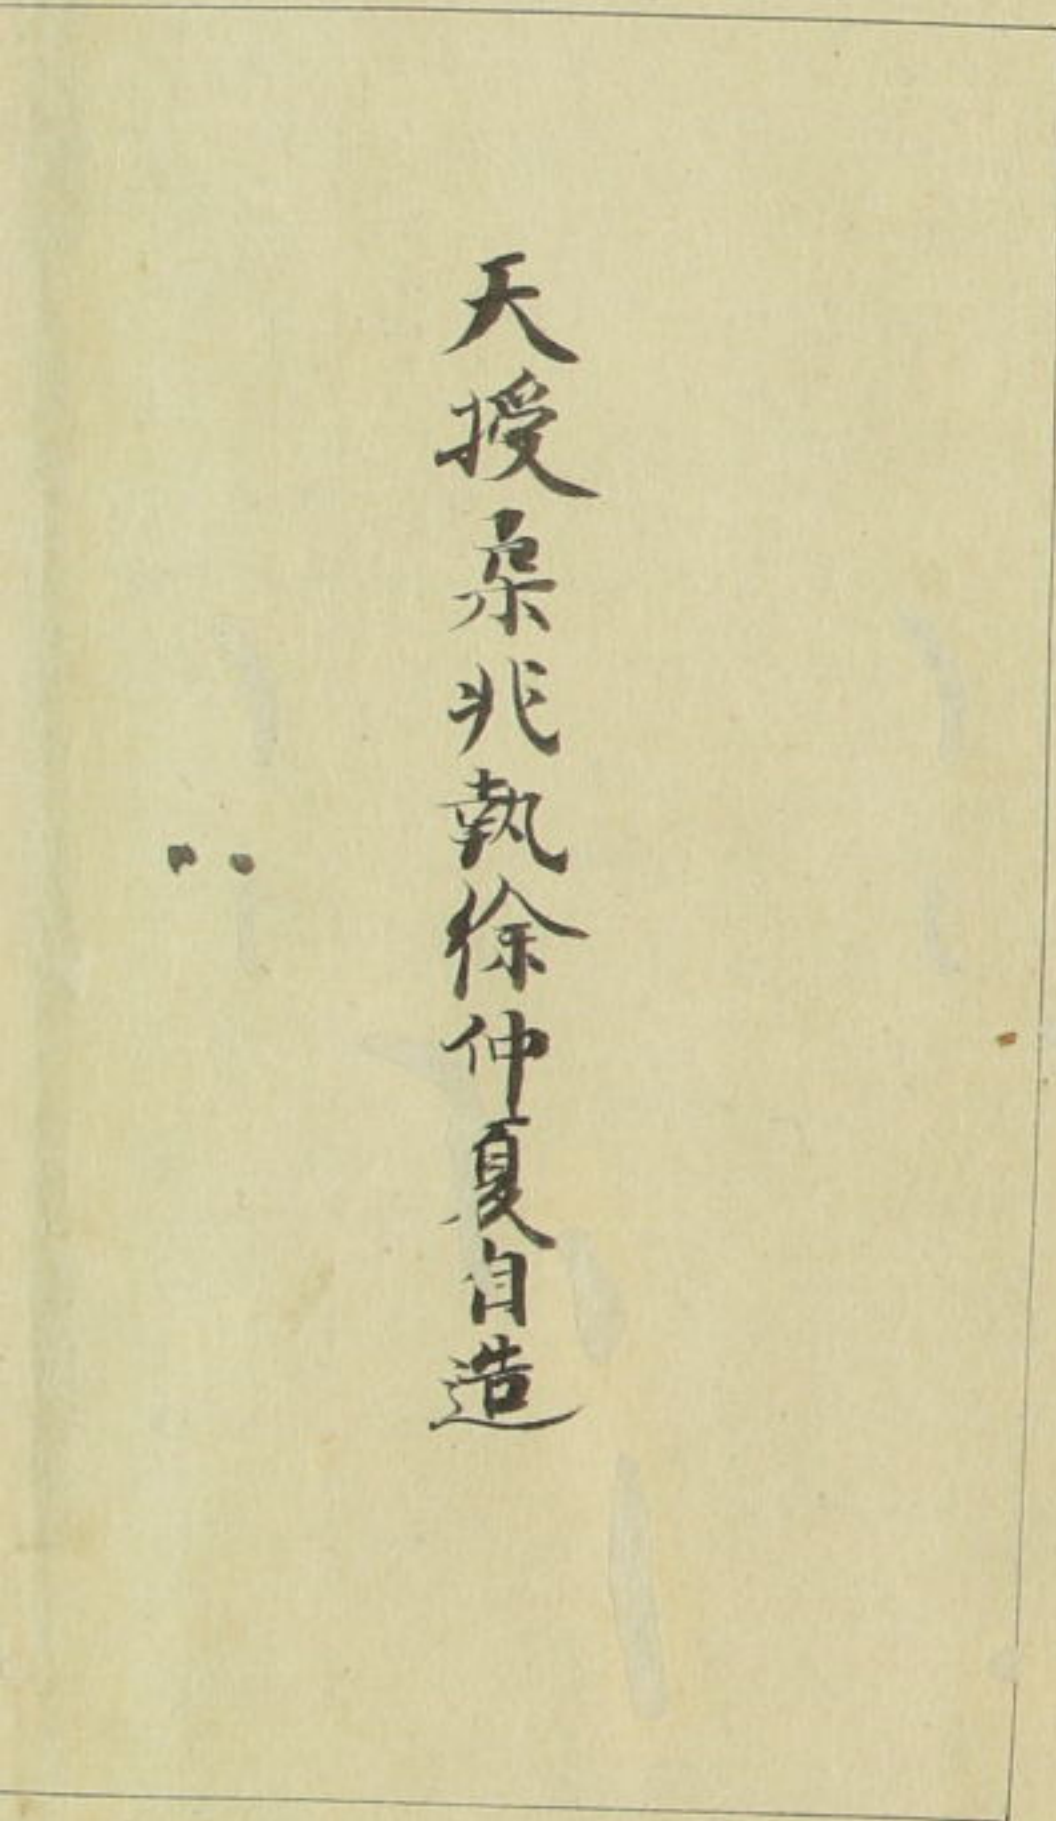 天授柔兆執徐仲夏自造